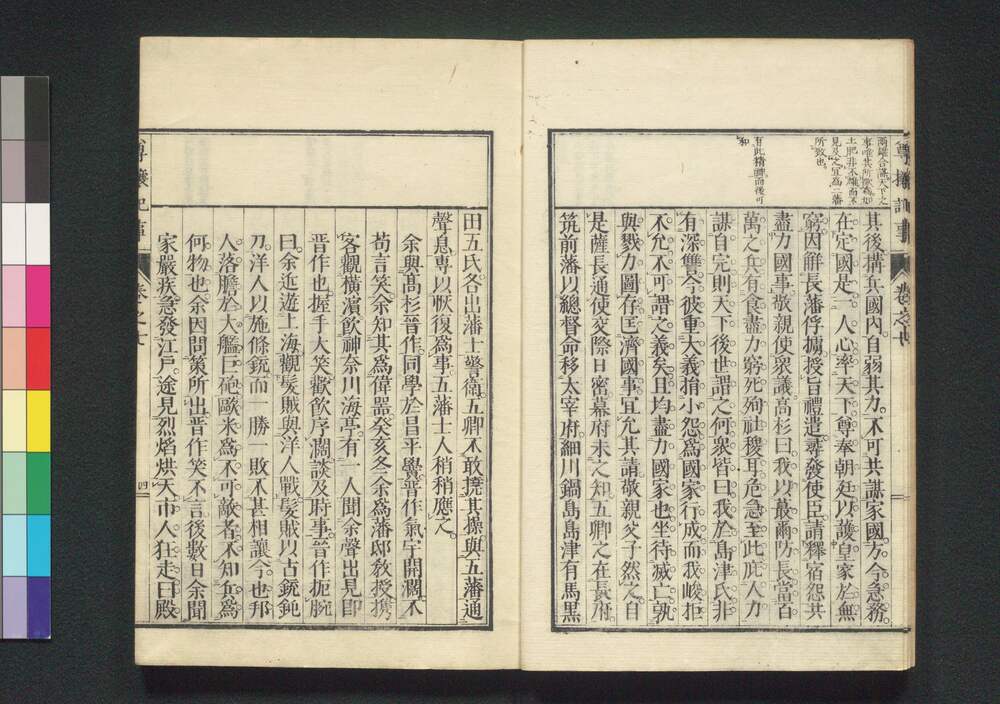 兩雄合謀天下之
事唯其所欲爲如
土肥非不雄而不
見及之宜爲二藩
所致也
有此精神而後可
和
其後搆兵國內。自弱其力。不可共謀家國。方今急務。
在定國是。一人心率天下。尊奉朝廷。以護皇家於無
窮。因辭長藩俘擄。授旨禮遣。尋發使臣。請釋宿怨共
盡力國事。敬親使衆議。高杉曰。我以蕞爾防長。當百
萬之兵。有食盡力窮。死殉社稷耳。危急至此。庇人力
謀自完。則天下後世謂之何。衆皆曰。我於島津氏。非
有深讐。今彼重大義。捐小怨。爲國家行成。而我峻拒
不允。不可謂之義矣。且均盡力國家也。坐待滅亡。孰
與戮力圖存。匡濟國事。宜允其請。敬親父子然之。自
是薩長通使。交際日密。幕府未之知。五卿之在長府。
筑前藩以總督命移太宰府。細川鍋島島津有馬黑
田五氏。各出藩士警衛。五卿不敢撓其操。與五藩通
聲息。專以恢復爲事。五藩士人稍稍應之。
余與高杉晉作同學於昌平黌。晉作氣宇開濶。不
苟言笑。余知其爲偉器。癸亥冬。余爲藩邸敎授。携
客觀橫濱。飮神奈川海亭。有一人聞余聲出見。即
晉作也。握手大笑。歡飮序濶。談及時事。晉作扼腕
曰。余近遊上海。觀髮賊與洋人戰。髮賊以古銃鈍
刀。洋人以施條銃。而一勝一敗。不甚相讓。今也邦
人。落膽於大艦巨砲。歐米爲不可敵者。不知兵爲
何物也。余因問策所出。晉作笑不言。後數日余聞
家嚴疾。急發江戶。途見烈焰烘天。市人狂走曰。殿
尊攘紀事
卷之七
四